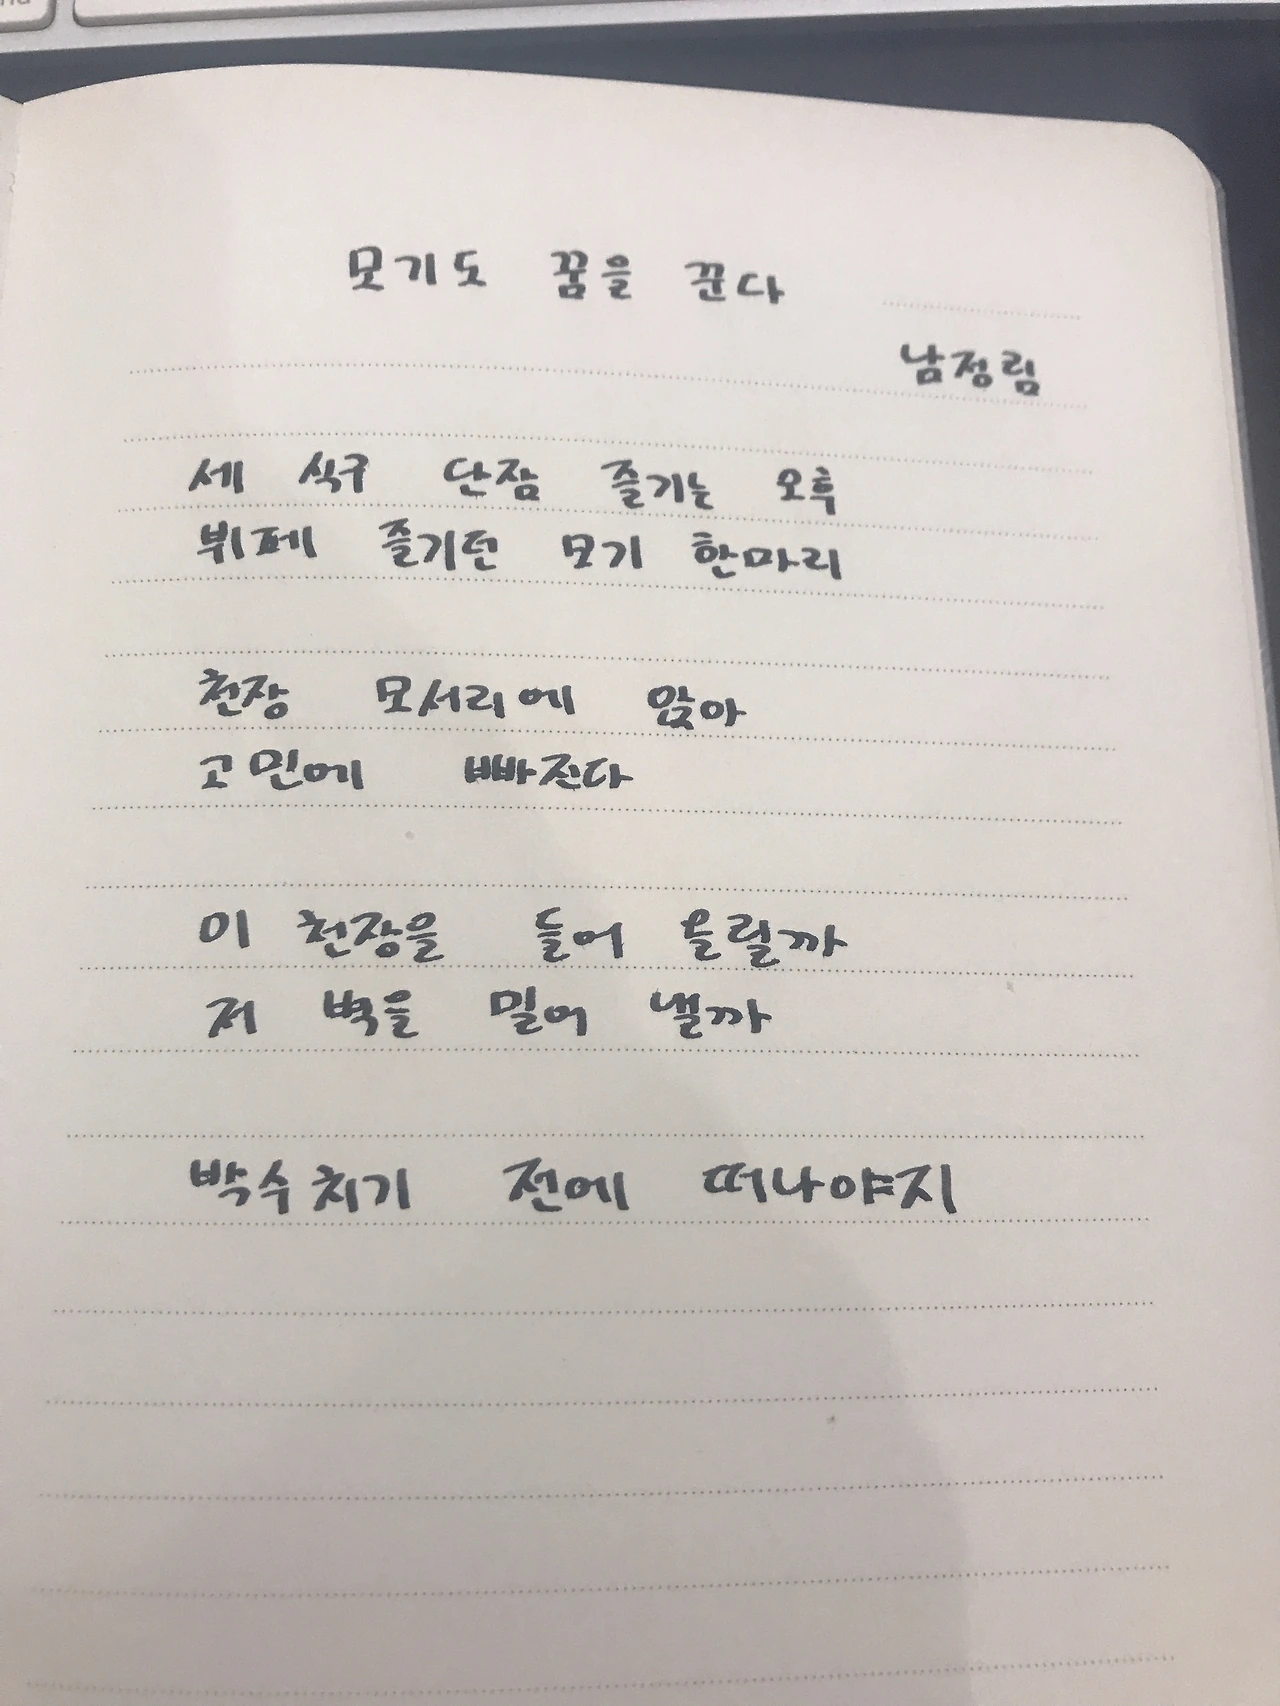 모기도 꿈을 꾼다
남정림
세 식구 단잠 즐기는 오후
뷔페 즐기던 모기 한마리
천장 모서리에 앉아
고민에 빠진다
이 천장을 들어 올릴까
저 벽을 밀어 낼까
박수치기 전에 떠나야지